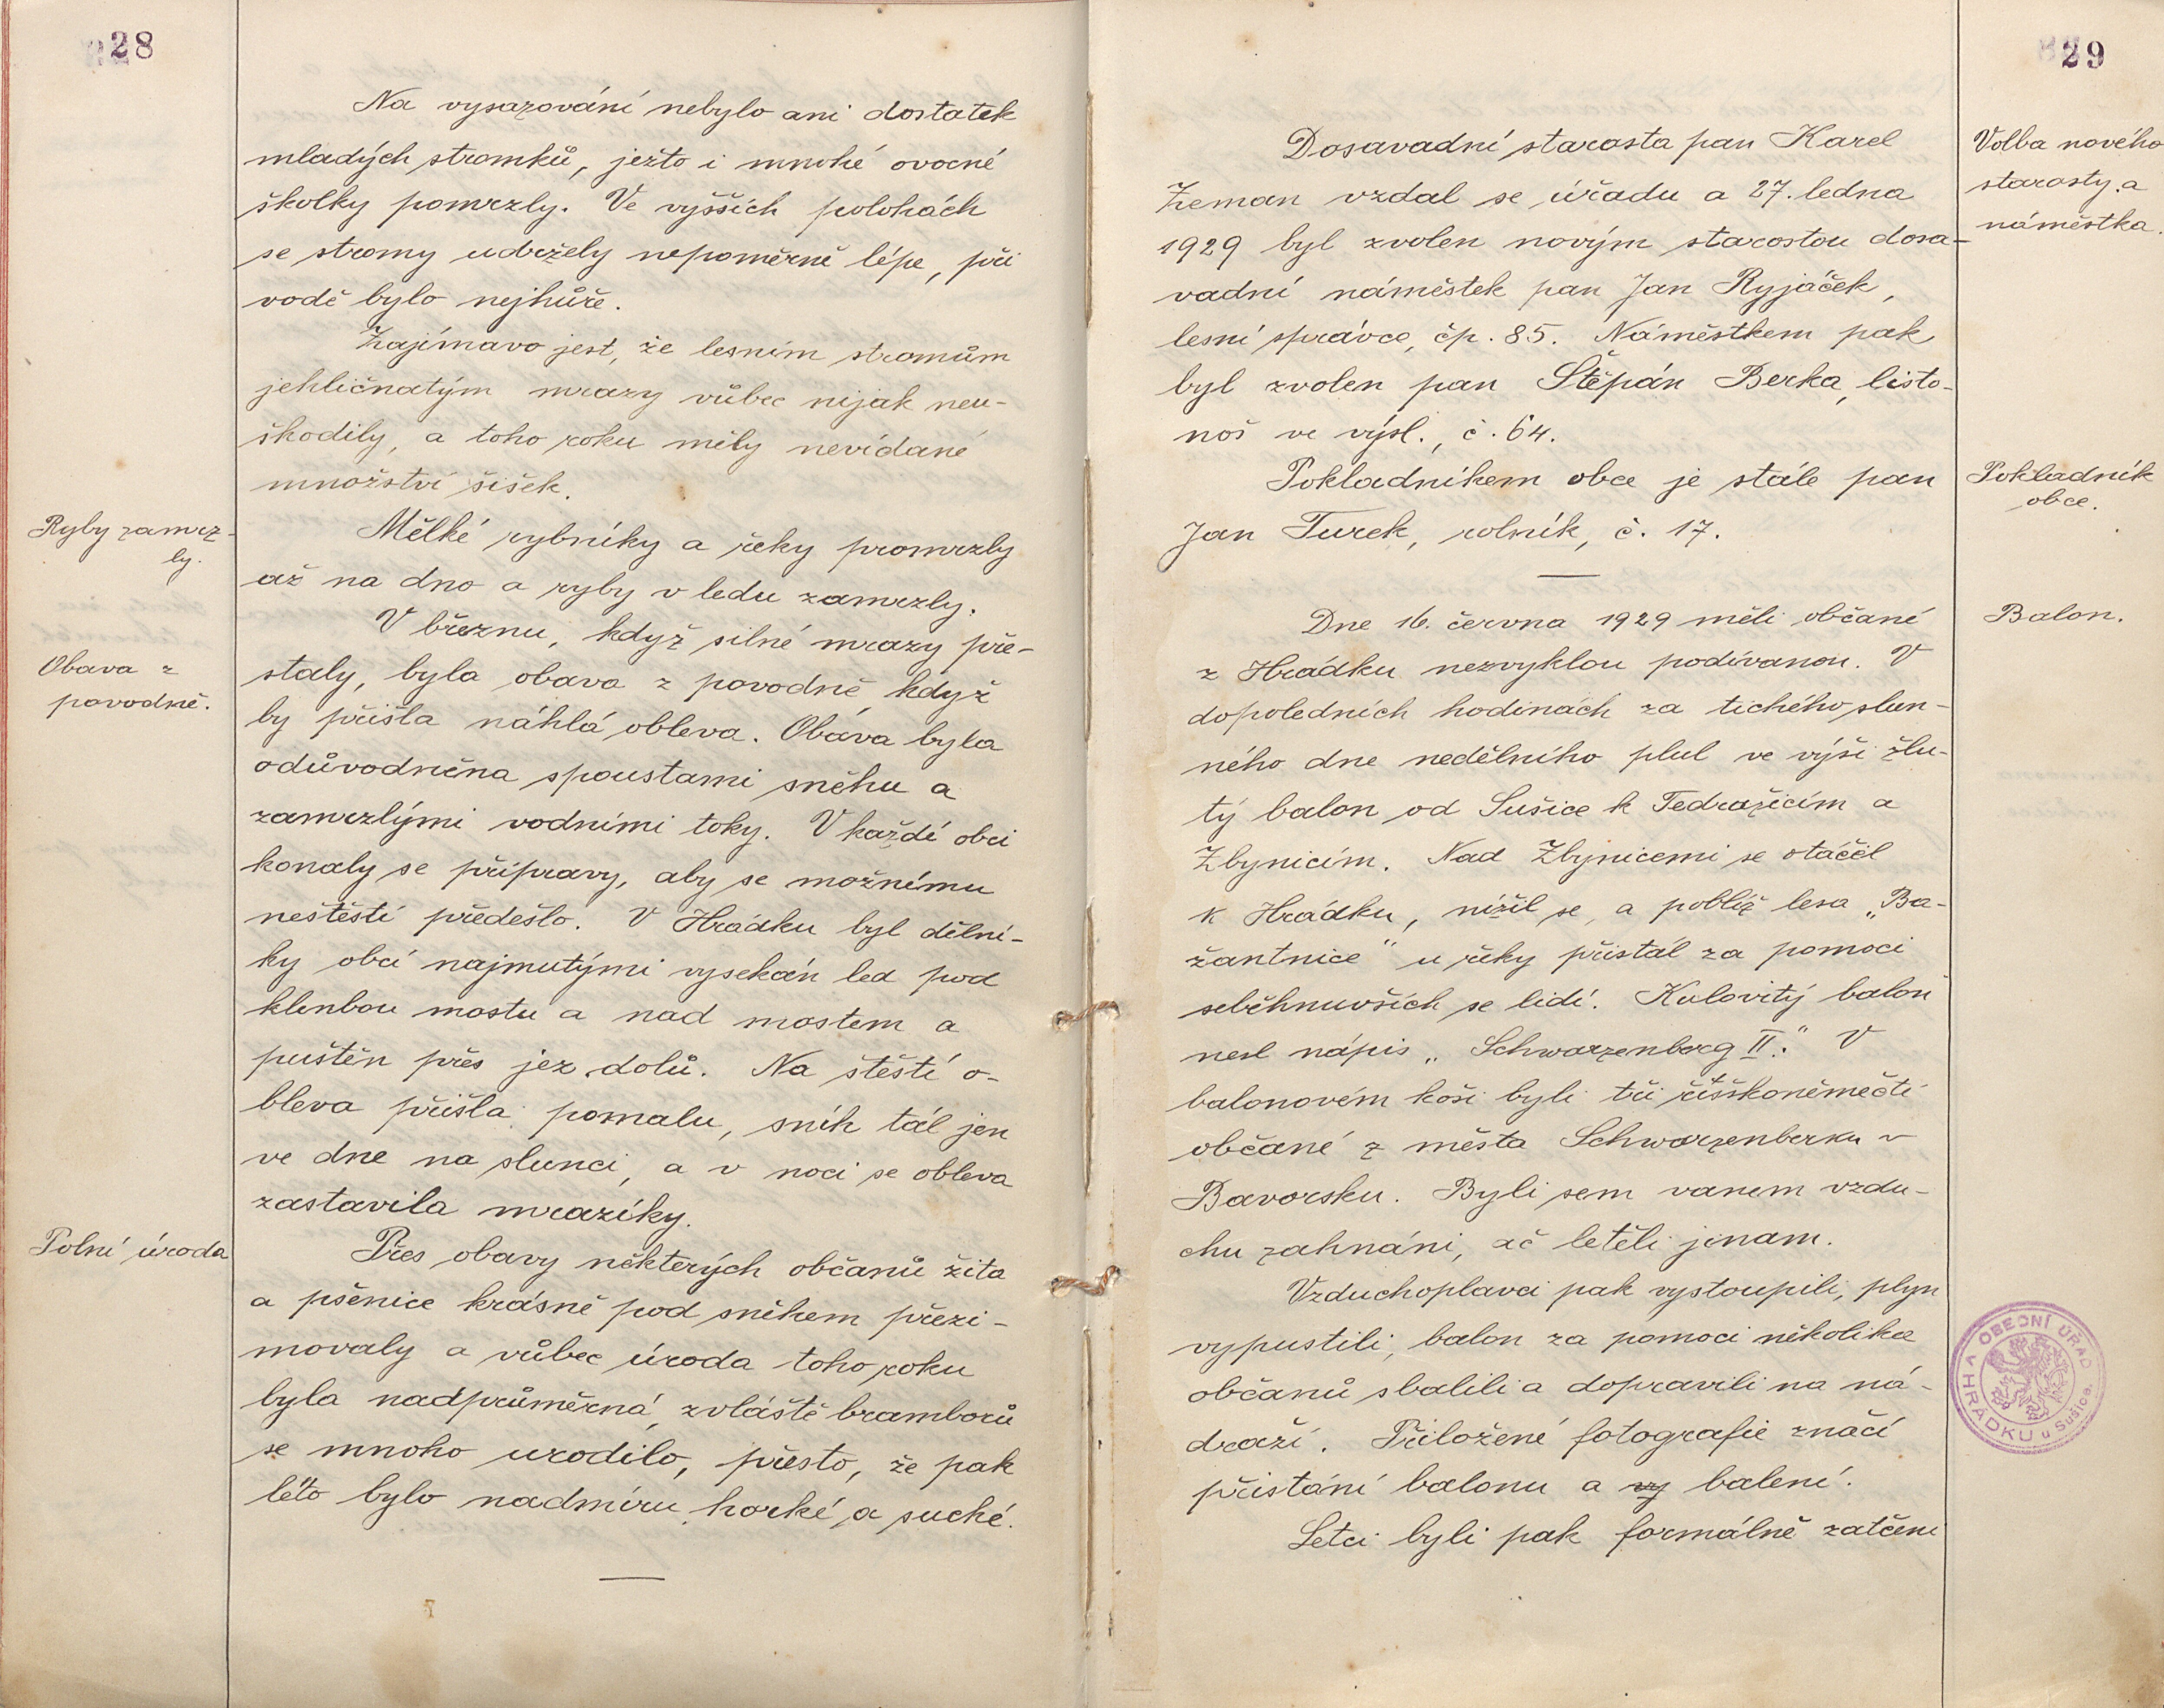 28
Na vysazování nebylo ani dostatek
mladých stromků, ježto i mnohé ovocné
školky pomrzly. Ve vyšších polohách
se stromy udržely nepoměrně lépe, při
vodě bylo nejhůře.
Zajímavo jest, že lesním stromům
jehličnatým mrazy vůbec nijak neu-
škodily, a toho roku měly nevídané
množství šišek.
Ryby zamrz-
ly.
Mělké rybníky a řeky promrzly
až na dno a ryby v ledu zamrzly.
V březnu, když silné mrazy pře-
Obava z
povodně.
staly, byla obava z povodně, když
by přišla náhlá obleva. Obava byla
odůvodněna spoustami sněhu a
zamrzlými vodními toky. V každé obci
konaly se přípravy, aby se možnému
neštěstí předešlo. V Hrádku byl dělní-
ky obcí najmutými vysekán led pod
klenbou mostu a nad mostem a
puštěn přes jez dolů. Na štěstí o-
bleva přišla pomalu, sníh tál jen
ve dne na slunci, a v noci se obleva
zastavila mrazíky.
Polní úroda
Přes obavy některých občanů žita
a pšenice krásně pod sněhem přezi-
movaly a vůbec úroda toho roku
byla nadprůměrná, zvláště bramborů
se mnoho urodilo, přesto, že pak
léto bylo nadmíru horké a suché.
29
Dosavadní starosta pan Karel
Zeman vzdal se úřadu a 27. ledna
1929 byl zvolen novým starostou dosa-
vadní náměstek pan Jan Ryjáček,
lesní správce, čp. 85. Náměstkem pak
byl zvolen pan Štěpán Berka, listo-
noš ve výsl., č. 64.
Volba nového
starosty a
náměstka.
Pokladníkem obce je stále pan
Jan Turek, rolník, č. 17.
Pokladník
obce.
Dne 16. června 1929 měli občané
z Hrádku nezvyklou podívanou. V
dopoledních hodinách za tichého slun-
ného dne nedělního plul ve výši žlu-
tý balon od Sušice k Tedražicím a
Zbynicím. Nad Zbynicemi se otáčel
k Hrádku, nížil se, a poblíž lesa „Ba-
žantnice“ u řeky přistál za pomoci
seběhnuvších se lidí. Kulovitý balon
nesl nápis „Schwarzenberg II.“ V
balonovém koši byli tři říšskoněmečtí
občané z města Schwarzenberku v
Bavorsku. Byli sem vanem vzdu-
chu zahnáni, ač letěli jinam.
Balon.
Vzduchoplavci pak vystoupili, plyn
vypustili, balon za pomoci několika
občanů sbalili a dopravili na ná-
draží. Přiložené fotografie značí
přistání balonu a vy balení.
Letci byli pak formálně zatčeni
OBECNÍ ÚŘAD
V HRÁDKU u Sušice.